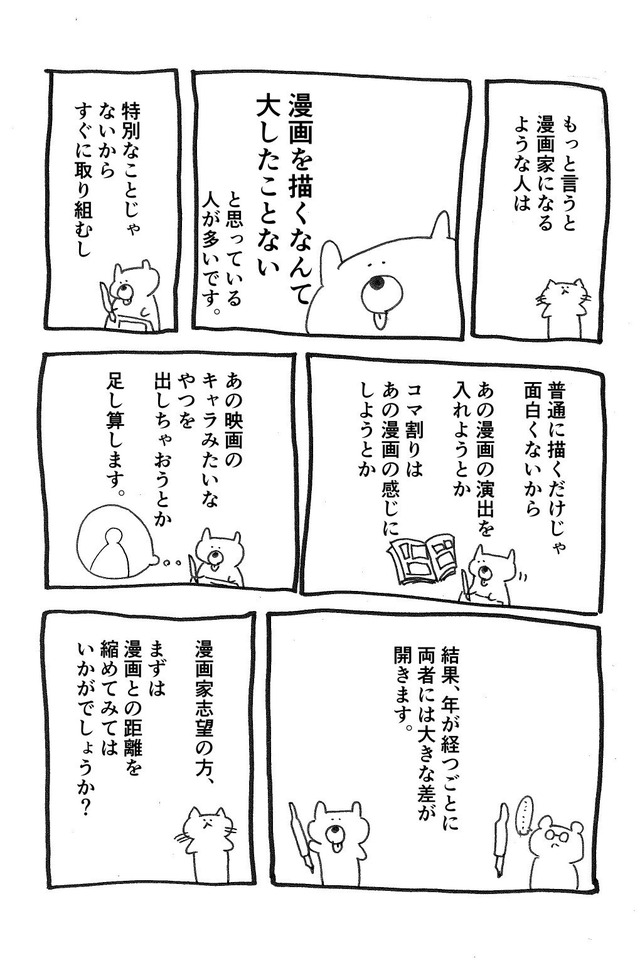 もっと言うと
漫画家になる
ような人は
漫画を描くなんて
大したことない
と思っている
人が多いです。
特別なことじゃ
ないから
すぐに取り組むし
普通に描くだけじゃ
面白くないから
あの漫画の演出を
入れようとか
コマ割りは
あの漫画の感じに
しようとか
あの映画の
キャラみたいな
やつを
出しちゃおうとか
足し算します。
結果、年が経つごとに
両者には大きな差が
開きます。
……
漫画家志望の方、
まずは
漫画との距離を
縮めてみては
いかがでしょうか?